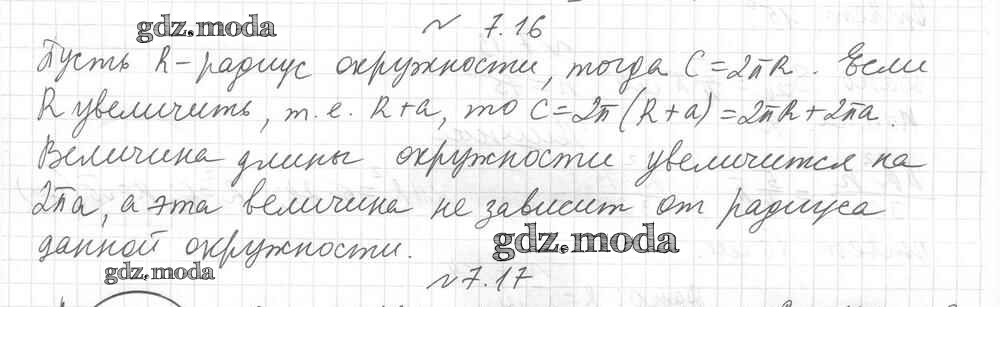 gdz.moda
№ 7.16
Пусть R – радиус окружности, тогда C = 2πR. Если
R увеличить, т.е. R + a, то C = 2π(R + a) = 2πR + 2πa.
Величина длины окружности увеличится на
2πa, а эта величина не зависит от радиуса
данной окружности.
gdz.moda
gdz.moda
№ 7.17